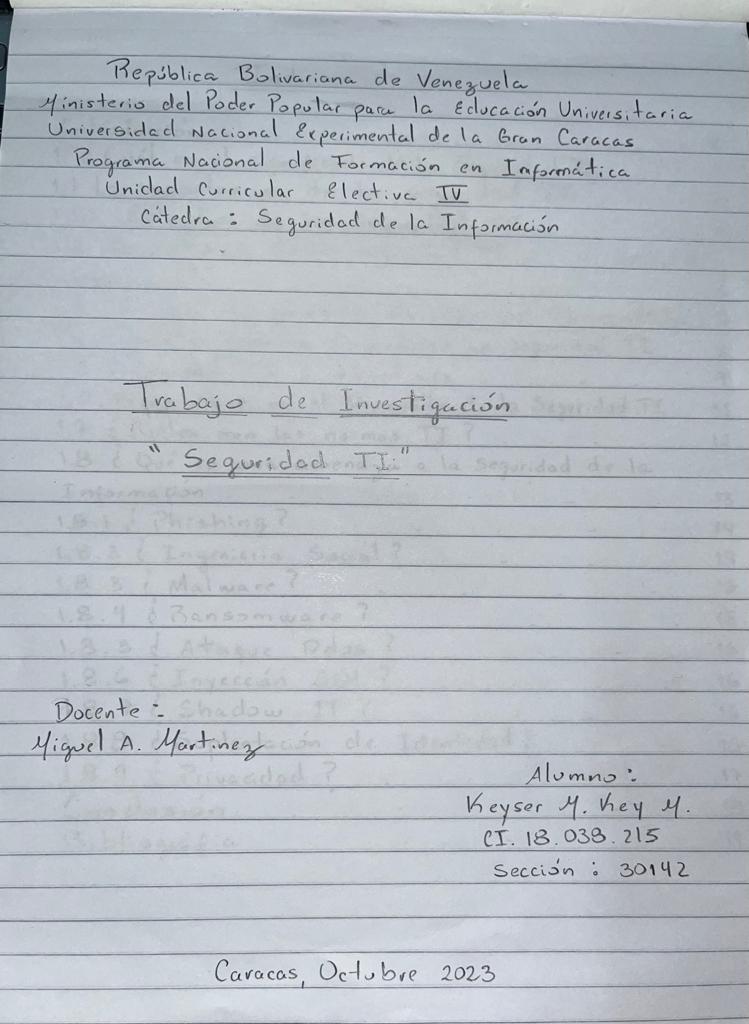 República Bolivariana de Venezuela
Ministerio del Poder Popular para la Educación Universitaria
Universidad Nacional Experimental de la Gran Caracas
Programa Nacional de Formación en Informática
Unidad Curricular Electiva IV
Cátedra : Seguridad de la Información
Trabajo de Investigación
"Seguridad TI."
Docente :
Miguel A. Martinez
Alumno :
Keyser M. Key M.
CI. 18.038.215
Sección : 30142
Caracas, Octubre 2023